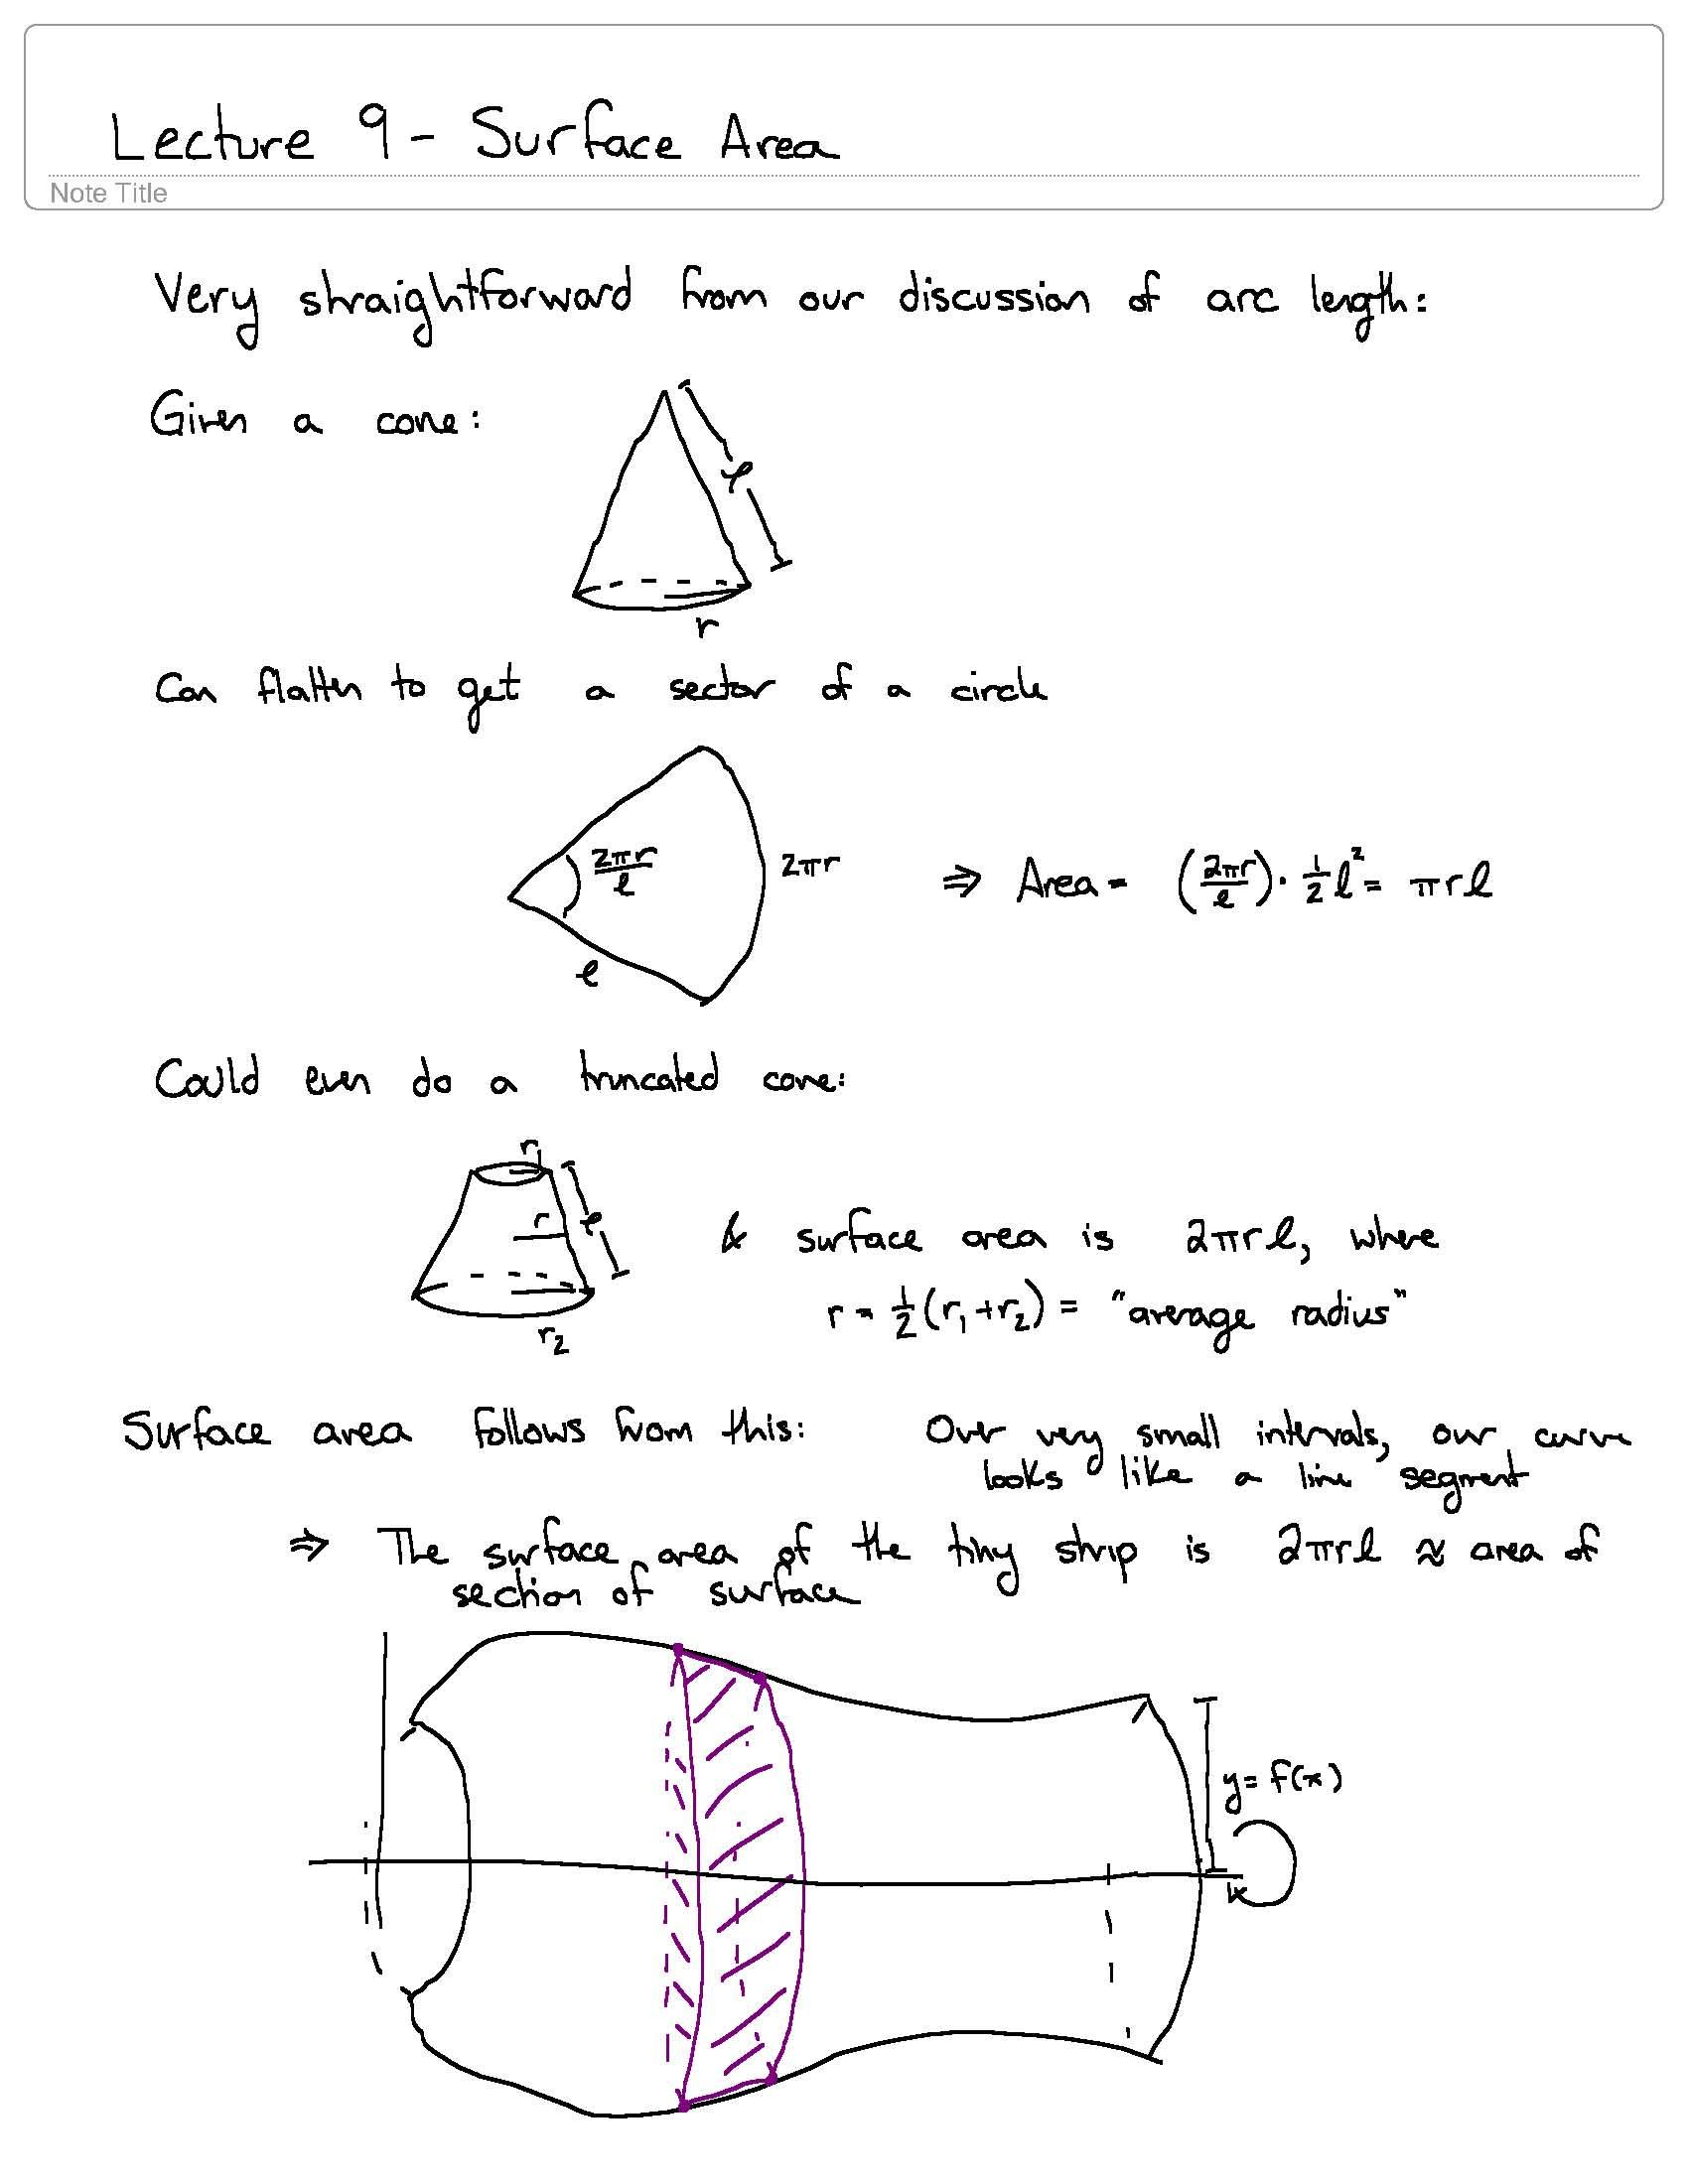 Lecture 9 - Surface Area
Note Title
Very straightforward from our discussion of arc length:
Given a cone:
l
r
Can flatten to get a sector of a circle
2πr/l
2πr
⇒ Area = (2πr/l)·½l² = πrl
l
Could even do a truncated cone:
r₁
r
l
& surface area is 2πrl, where
r = ½(r₁+r₂) = "average radius"
r₂
Surface area follows from this: Over very small intervals, our curve
looks like a line segment
⇒ The surface area of the tiny strip is 2πrl ≈ area of
section of surface
y = f(x)